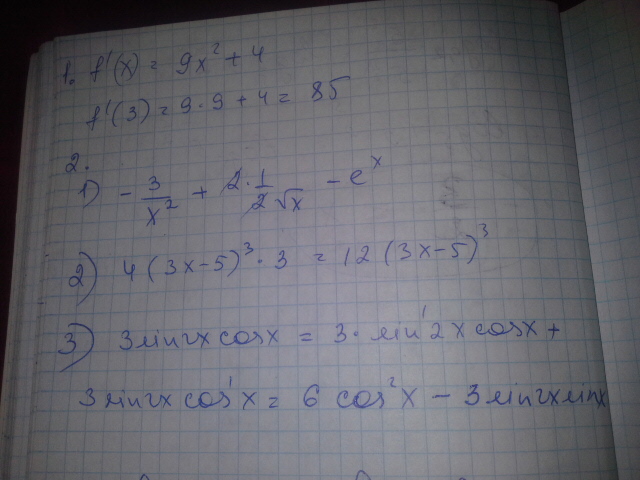 1. f'(x) = 9x² + 4
f'(3) = 9·9 + 4 = 85
2.
1) - 3/x² + 2·1/2√x - eˣ
2) 4(3x-5)³·3 = 12(3x-5)³
3) 3sin2x cosx = 3·sin'2x cosx +
3sin2x cos'x = 6 cos²x - 3sin2x sinx